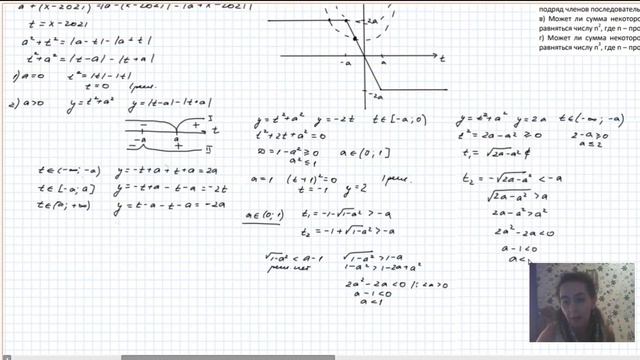 a+(x-2021) |a-(x-2021)| -|a+x-2021|
t = x-2021
a²+t² = |a-t| - |a+t|
t²+a² = |t-a| - |t+a|
1) a=0 t²=|t|-|t|
t=0 1 реш.
2) a>0 y=t²+a² y=|t-a|-|t+a|
- + I
-a a t
- + II
t∈(-∞; -a) y=-t+a+t+a=2a
t∈[-a; a] y=-t+a-t-a=-2t
t∈(a; +∞) y=t-a-t-a=-2a
2a
-a a t
-2a
y=t²+a² y=-2t t∈[-a; 0)
t²+2t+a²=0
D=1-a²≥0 a∈(0; 1]
a²≤1
a=1 (t+1)²=0 1 реш.
t=-1 y=2
a∈(0; 1) t₁=-1-√1-a² >-a
t₂=-1+√1-a² >-a
√1-a² < a-1 √1-a² > 1-a
реш. нет 1-a² > 1-2a+a²
2a²-2a<0 |: 2a>0
a-1<0
a<1
y=t²+a² y=2a t∈(-∞; -a)
t²=2a-a²≥0 2-a≥0
a≤2
t₁=√2a-a² ∉
t₂=-√2a-a² <-a
√2a-a² >a
2a-a²>a²
2a²-2a<0
a-1<0
a<
подряд членов последователь
в) Может ли сумма некоторо
равняться числу n², где n – про
г) Может ли сумма некоторо
равняться числу n², где n – про